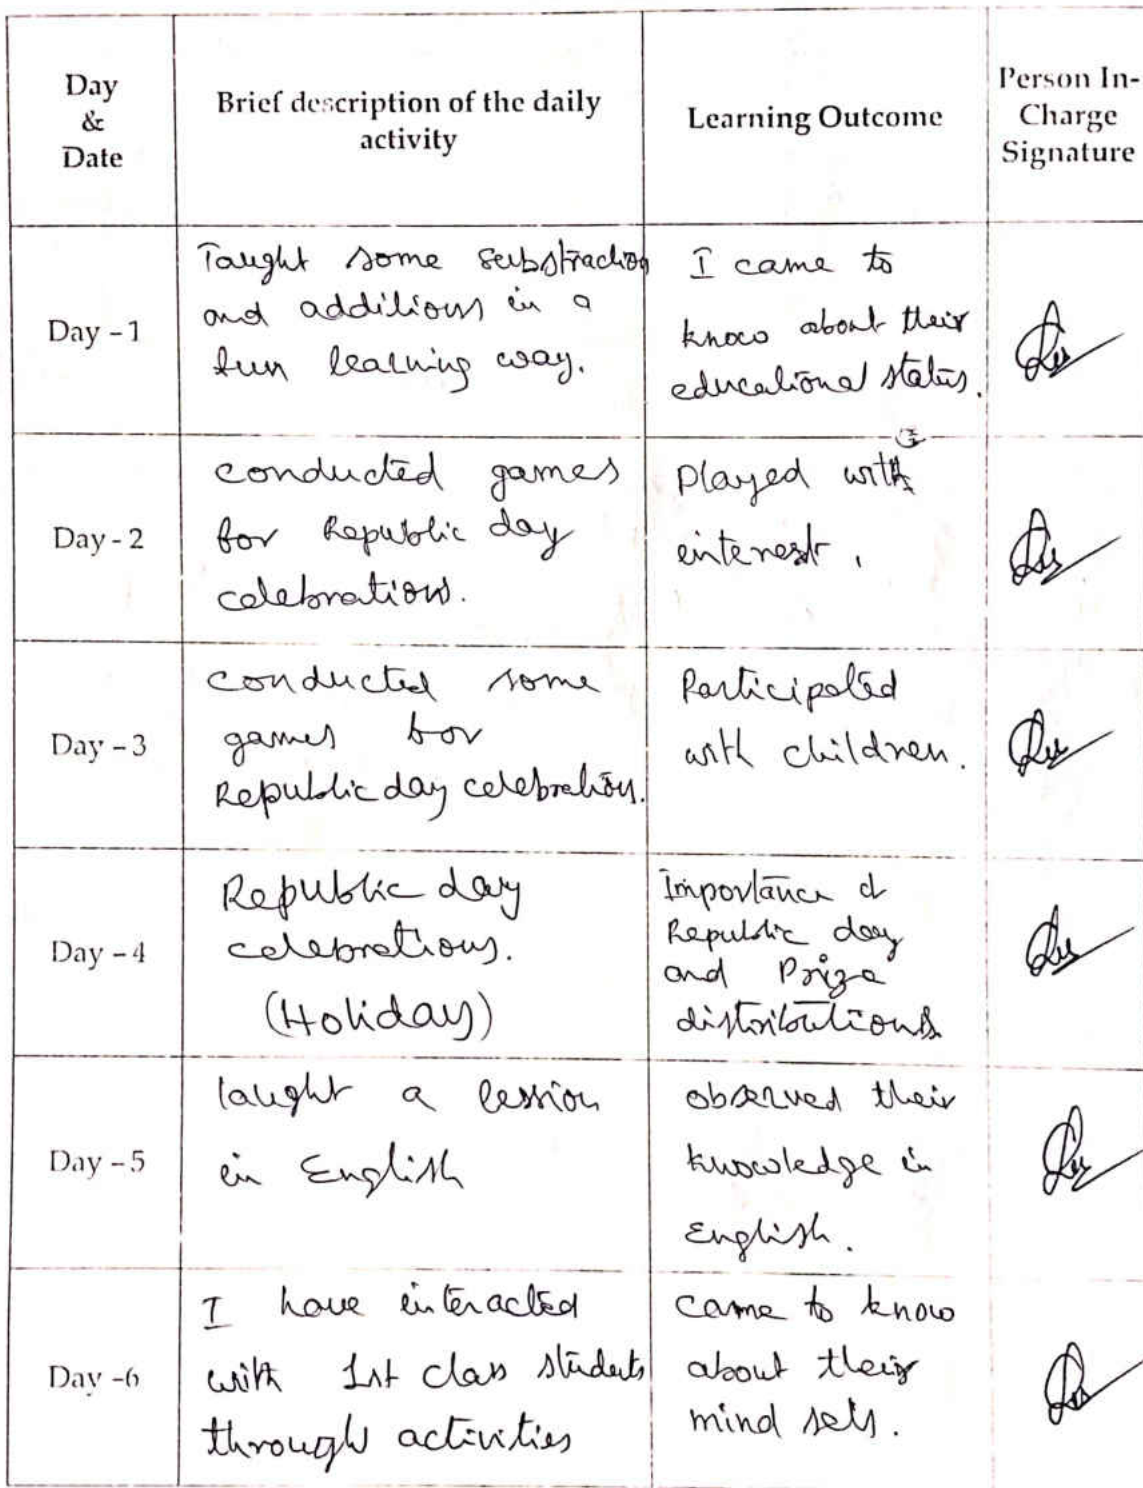 Day
&
Date
Brief description of the daily
activity
Learning Outcome
Person In-
Charge
Signature
Day - 1
Taught some substraction
and additions in a
fun learning way.
I came to
know about their
educational status.
Day - 2
conducted games
for Republic day
celebrations.
Played with
interest.
Day - 3
conducted some
games for
Republic day celebration.
Participated
with children.
Day - 4
Republic day
celebrations.
(Holiday)
Importance of
Republic day
and Prize
distributions
Day - 5
taught a lession
in English
observed their
knowledge in
English.
Day -6
I have interacted
with 1st class students
through activities
came to know
about their
mind sets.